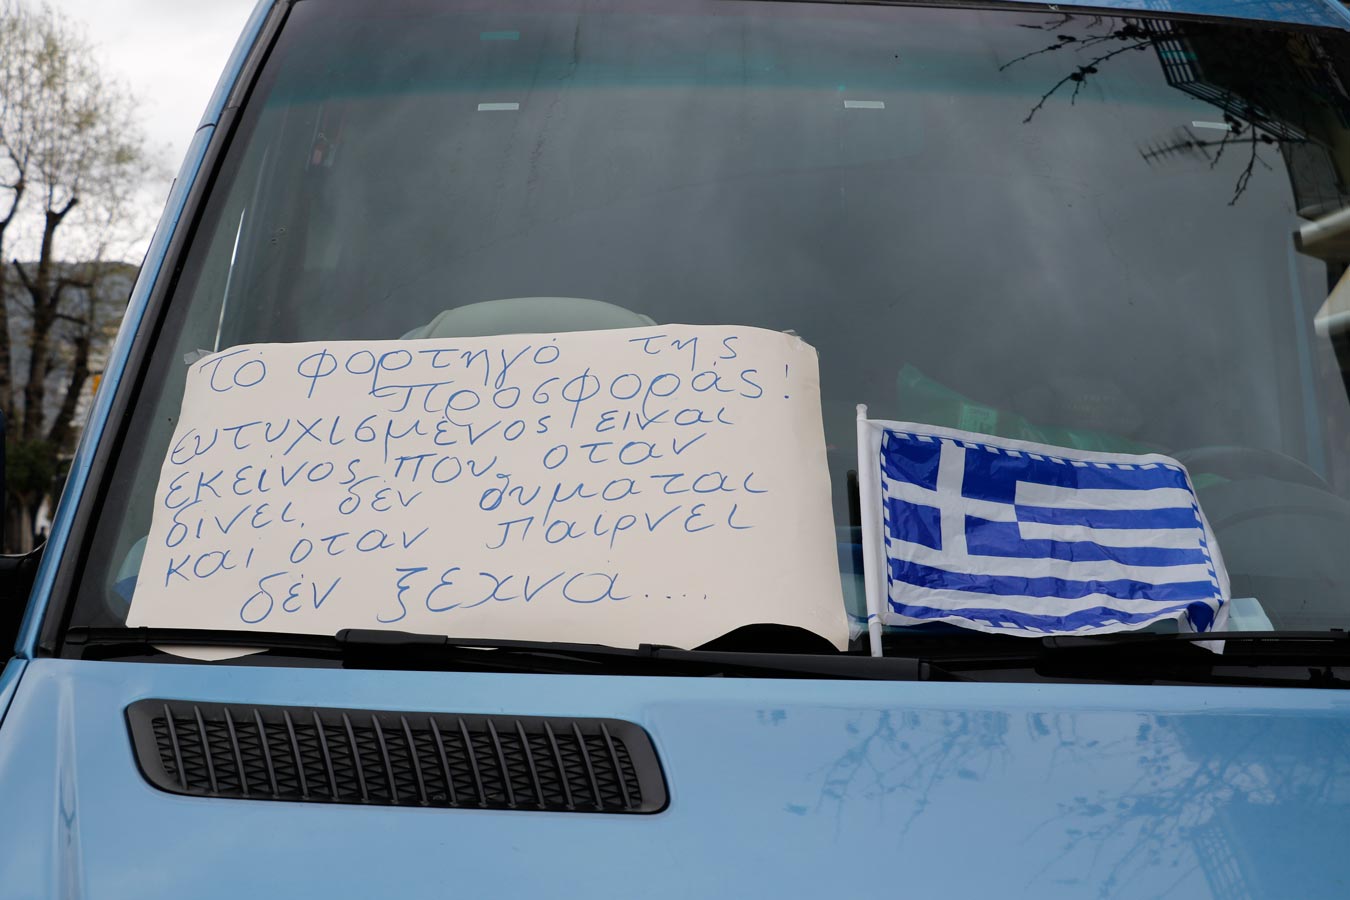 Τό φορτηγό της
προσφοράς!
ευτυχισμένος είναι
εκείνος που οταν
δίνει δέν θυμαται
και οταν παίρνει
δέν ξεχνά....